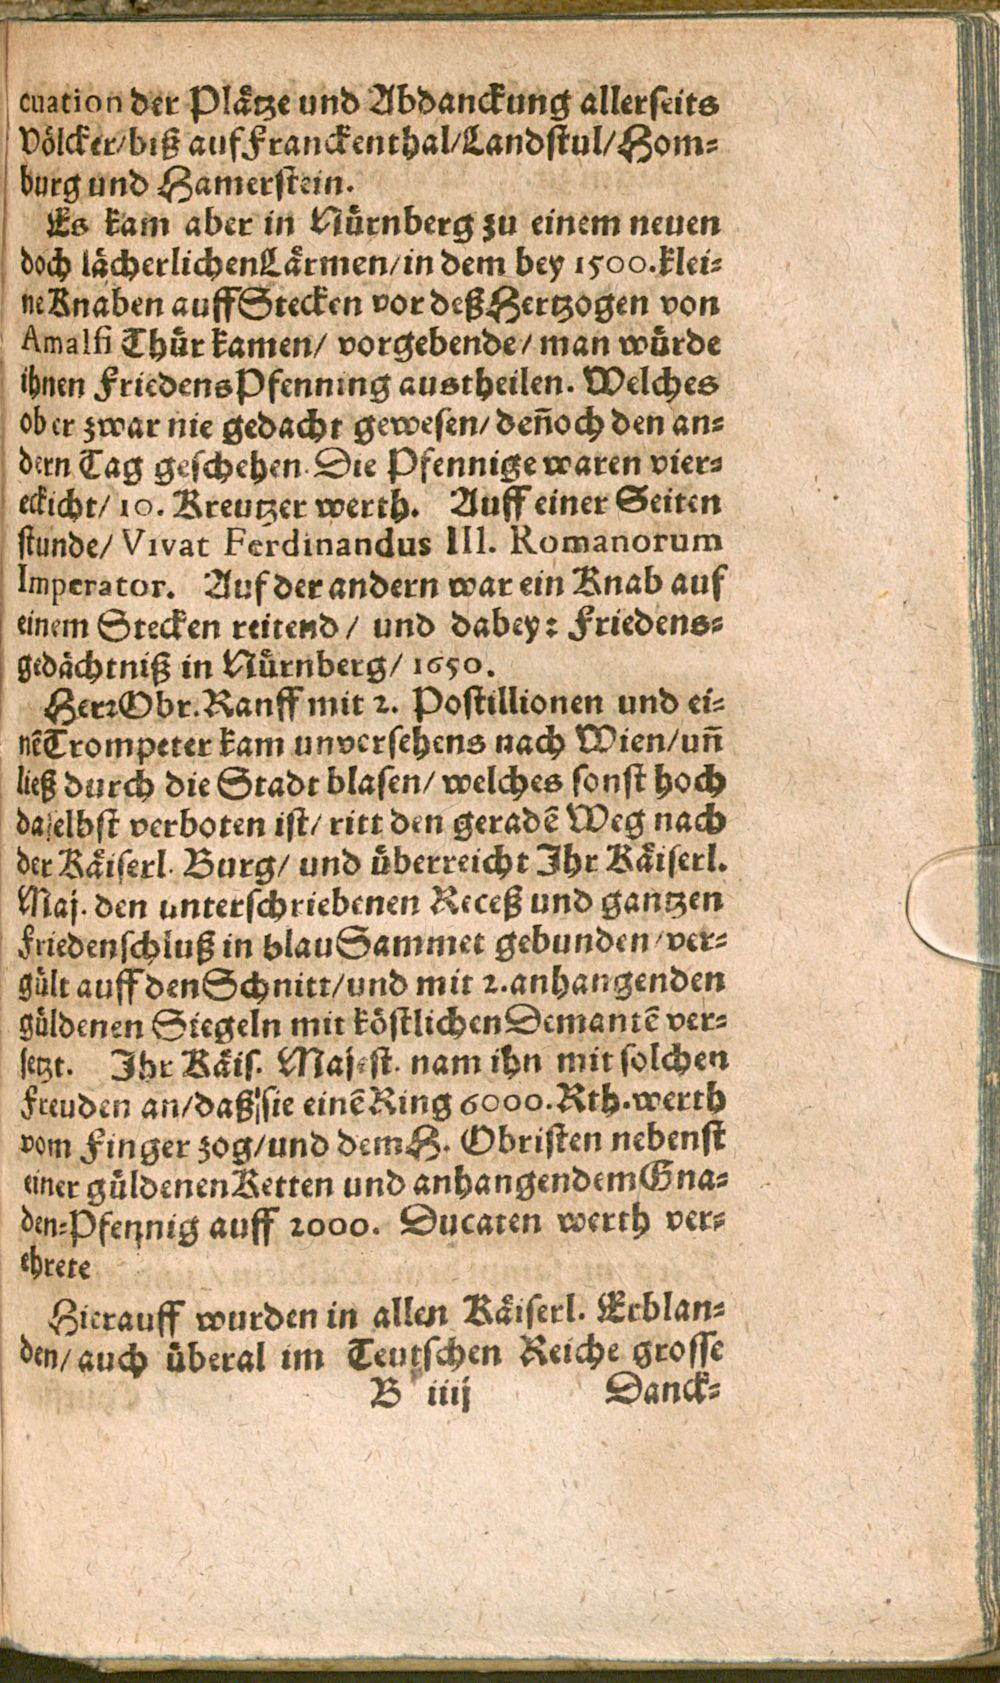 cuation der Plätze und Abdanckung allerseits
Völcker/biß auf Franckenthal/Landstul/Hom-
burg und Hamerstein.
Es kam aber in Nürnberg zu einem neuen
doch lächerlichen Lärmen/in dem bey 1500. klei-
ne Knaben auff Stecken vor deß Hertzogen von
Amalfi Thür kamen/ vorgebende/ man würde
ihnen FriedensPfenning austheilen. Welches
ober zwar nie gedacht gewesen/ deñoch den an-
dern Tag geschehen. Die Pfennige waren vier-
eckicht/ 10. Kreutzer werth. Auff einer Seiten
stunde/ Vivat Ferdinandus III. Romanorum
Imperator. Auf der andern war ein Knab auf
einem Stecken reitend/ und dabey: Friedens-
gedächtniß in Nürnberg/ 1650.
Herr Obr. Ranff mit 2. Postillionen und ei-
nẽ Trompeter kam unversehens nach Wien/uñ
ließ durch die Stadt blasen/ welches sonst hoch
daselbst verboten ist/ ritt den geradẽ Weg nach
der Käiserl. Burg/ und überreicht Ihr Käiserl.
Maj. den unterschriebenen Receß und gantzen
Friedenschluß in blau Sammet gebunden/ver-
gült auff den Schnitt/und mit 2. anhangenden
güldenen Siegeln mit köstlichen Demantẽ ver-
setzt. Ihr Käis. Majest. nam ihn mit solchen
Freuden an/daß sie einẽ Ring 6000. Rth. werth
vom Finger zog/und dem H. Obristen nebenst
einer güldenen Ketten und anhangendem Gna-
den-Pfennig auff 2000. Ducaten werth ver-
ehrete
Hierauff wurden in allen Käiserl. Erblan-
den/ auch überal im Teutschen Reiche grosse
B iiij Danck-